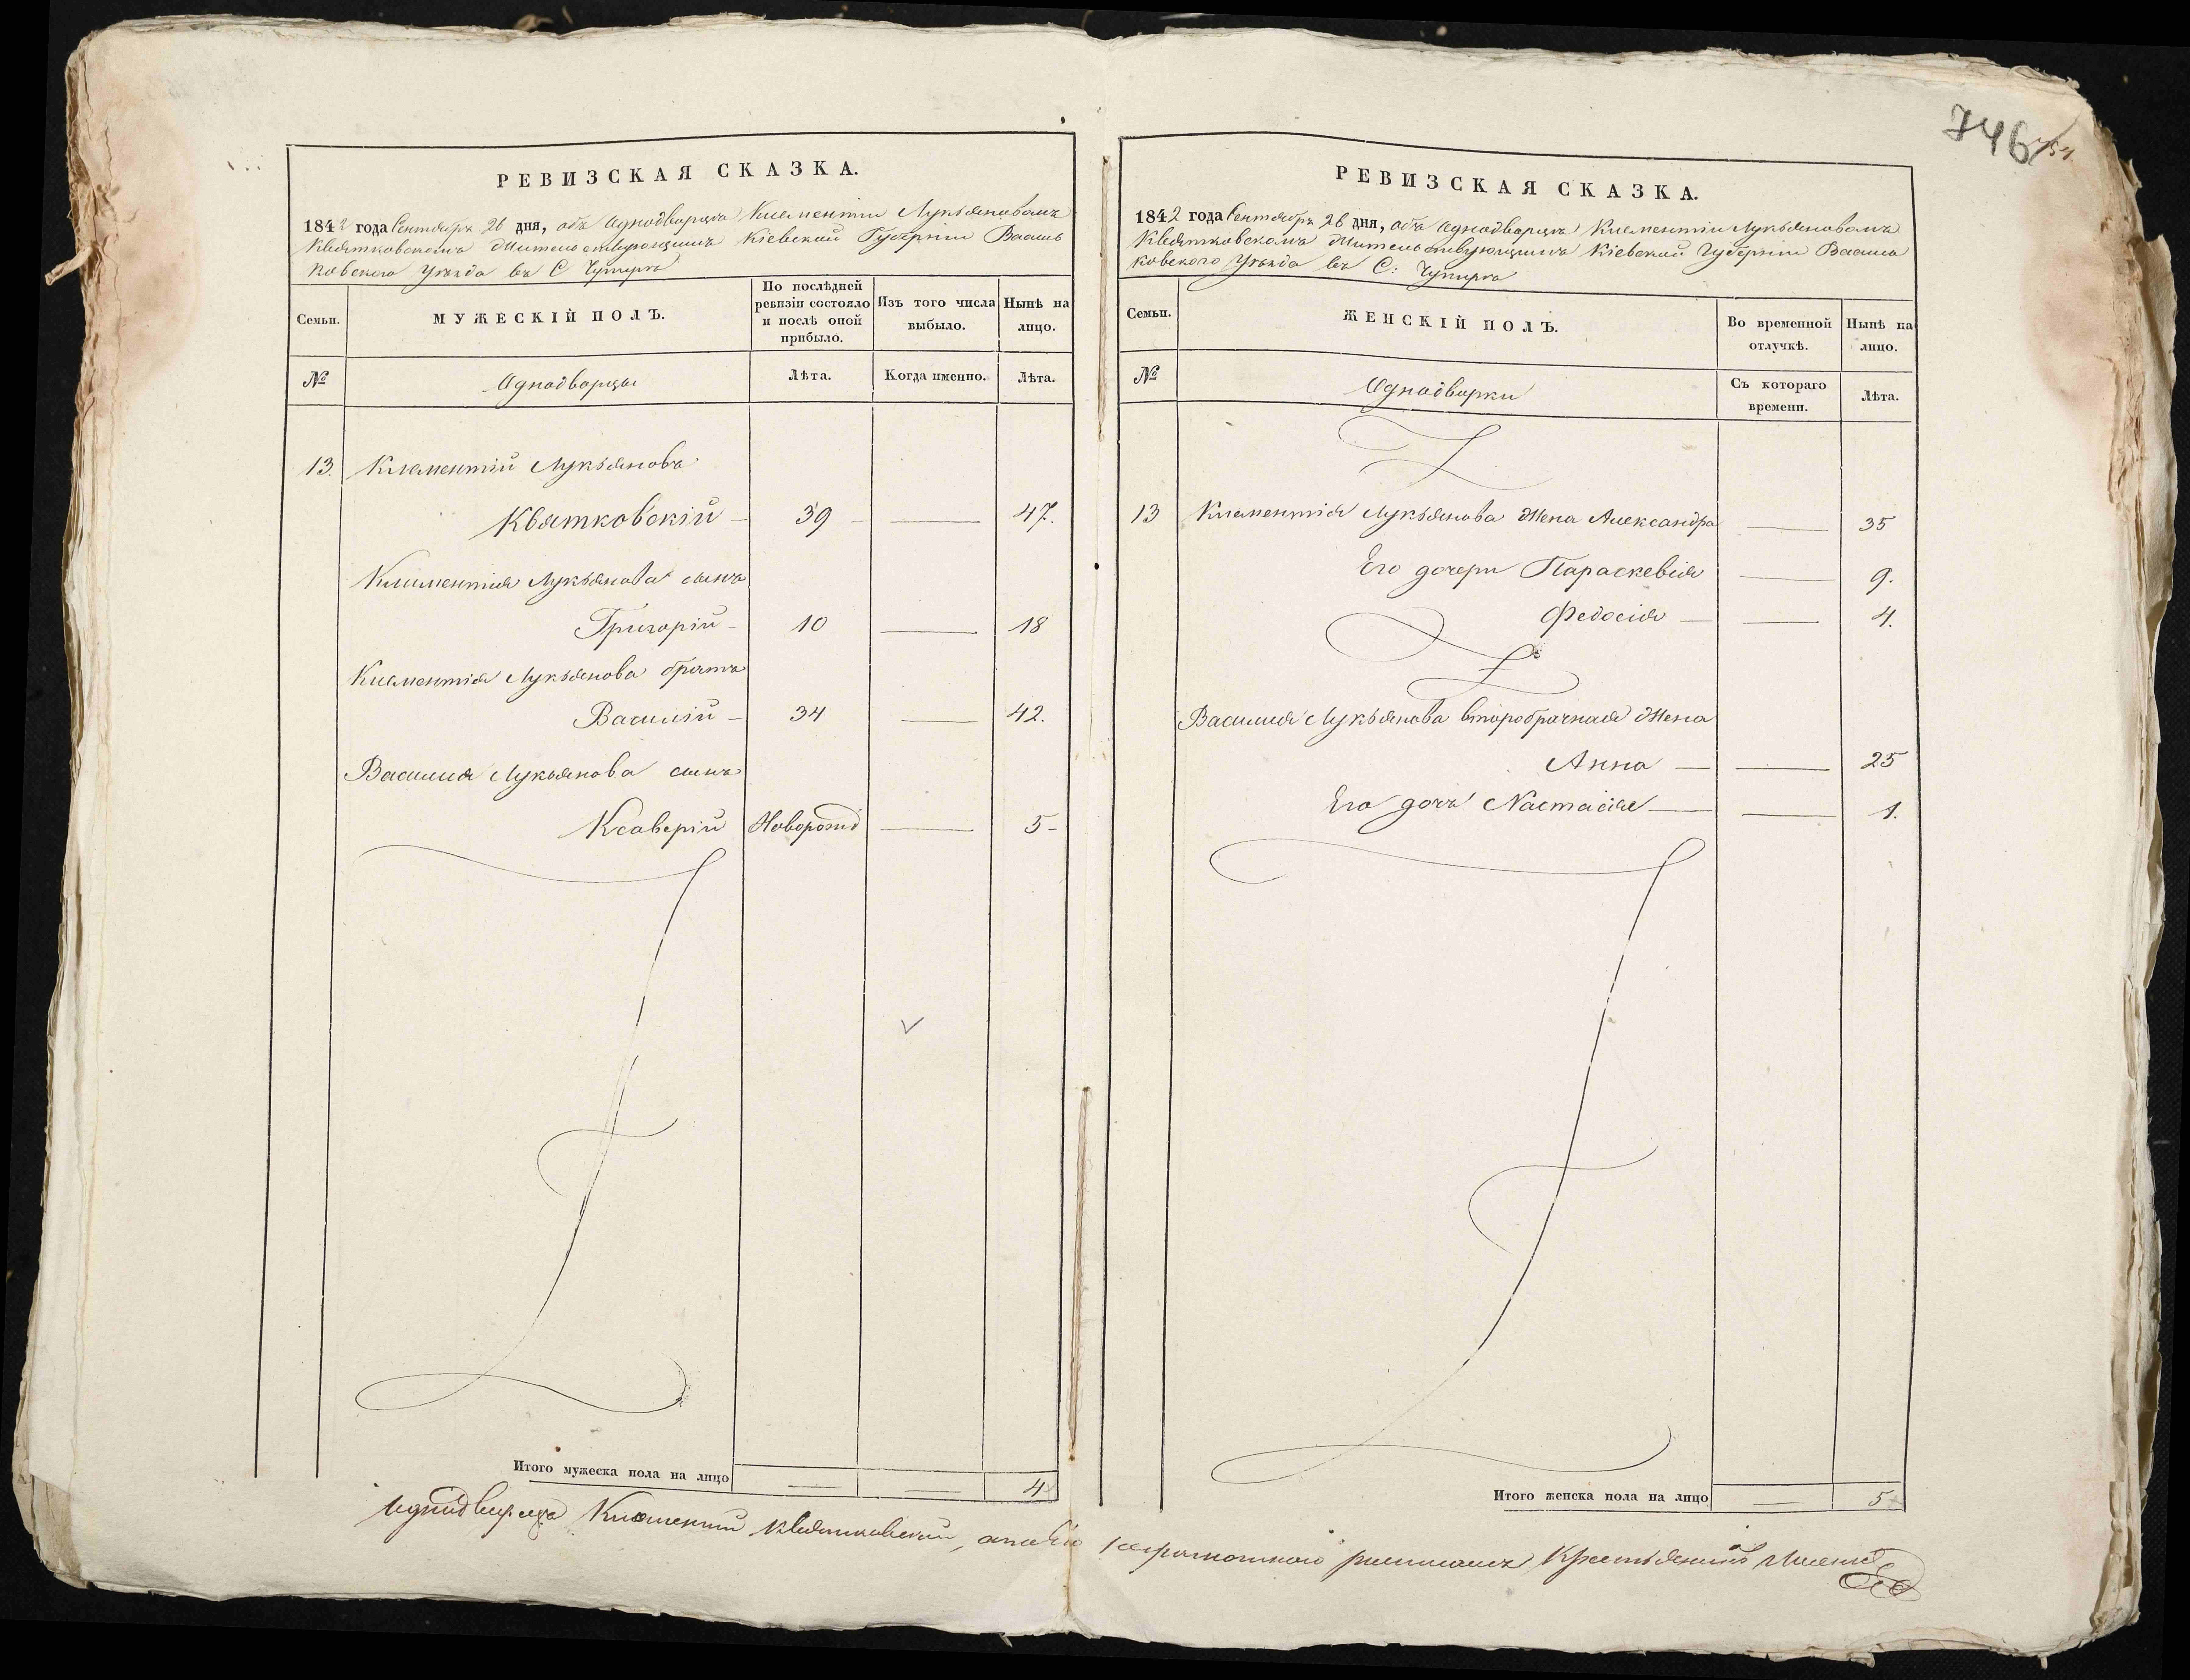 746
РЕВИЗСКАЯ СКАЗКА.
1842 года Сентября 26 дня, объ Однодворцѣ Климентіи Лукьяновомъ
Квятковскомъ Жительствующимъ Кіевской Губерніи Василь
ковского Уѣзда въ С
Семьи.
МУЖЕСКІЙ ПОЛЪ.
По послѣдней
ревизіи состояло
и послѣ оной
прибыло.
Изъ того числа
выбыло.
Нынѣ на
лицо.
№
Однодворцы
Лѣта.
Когда именно.
Лѣта.
13. Климентій Лукьяновъ
Квятковскій 39 47.
Климентія Лукьянова сынъ
Григорій 10 18
Климентія Лукьянова братъ
Василій 34 42.
Василия Лукьянова сынъ
Ксаверій Новорожд 5
Итого мужеска пола на лицо 4
РЕВИЗСКАЯ СКАЗКА.
1842 года Сентября 26 дня, объ Однодворцѣ Климентіи Лукьяновомъ
Квятковскомъ Жительствующимъ Кіевской Губерніи Василь
ковского Уѣзда въ С:
Семьи.
ЖЕНСКІЙ ПОЛЪ.
Во временной
отлучкѣ.
Нынѣ на
лицо.
№
Однодворки
Съ котораго
времени.
Лѣта.
13 Климентія Лукьянова Жена Александра 35
Его дочери Параскевія 9.
Федосія 4.
Василия Лукьянова второбрачная Жена
Анна 25
Его дочь Настасія 1.
Итого женска пола на лицо 5
Однодворецъ Климентий Квятковский, неграмотного росписался Крестьянинъ